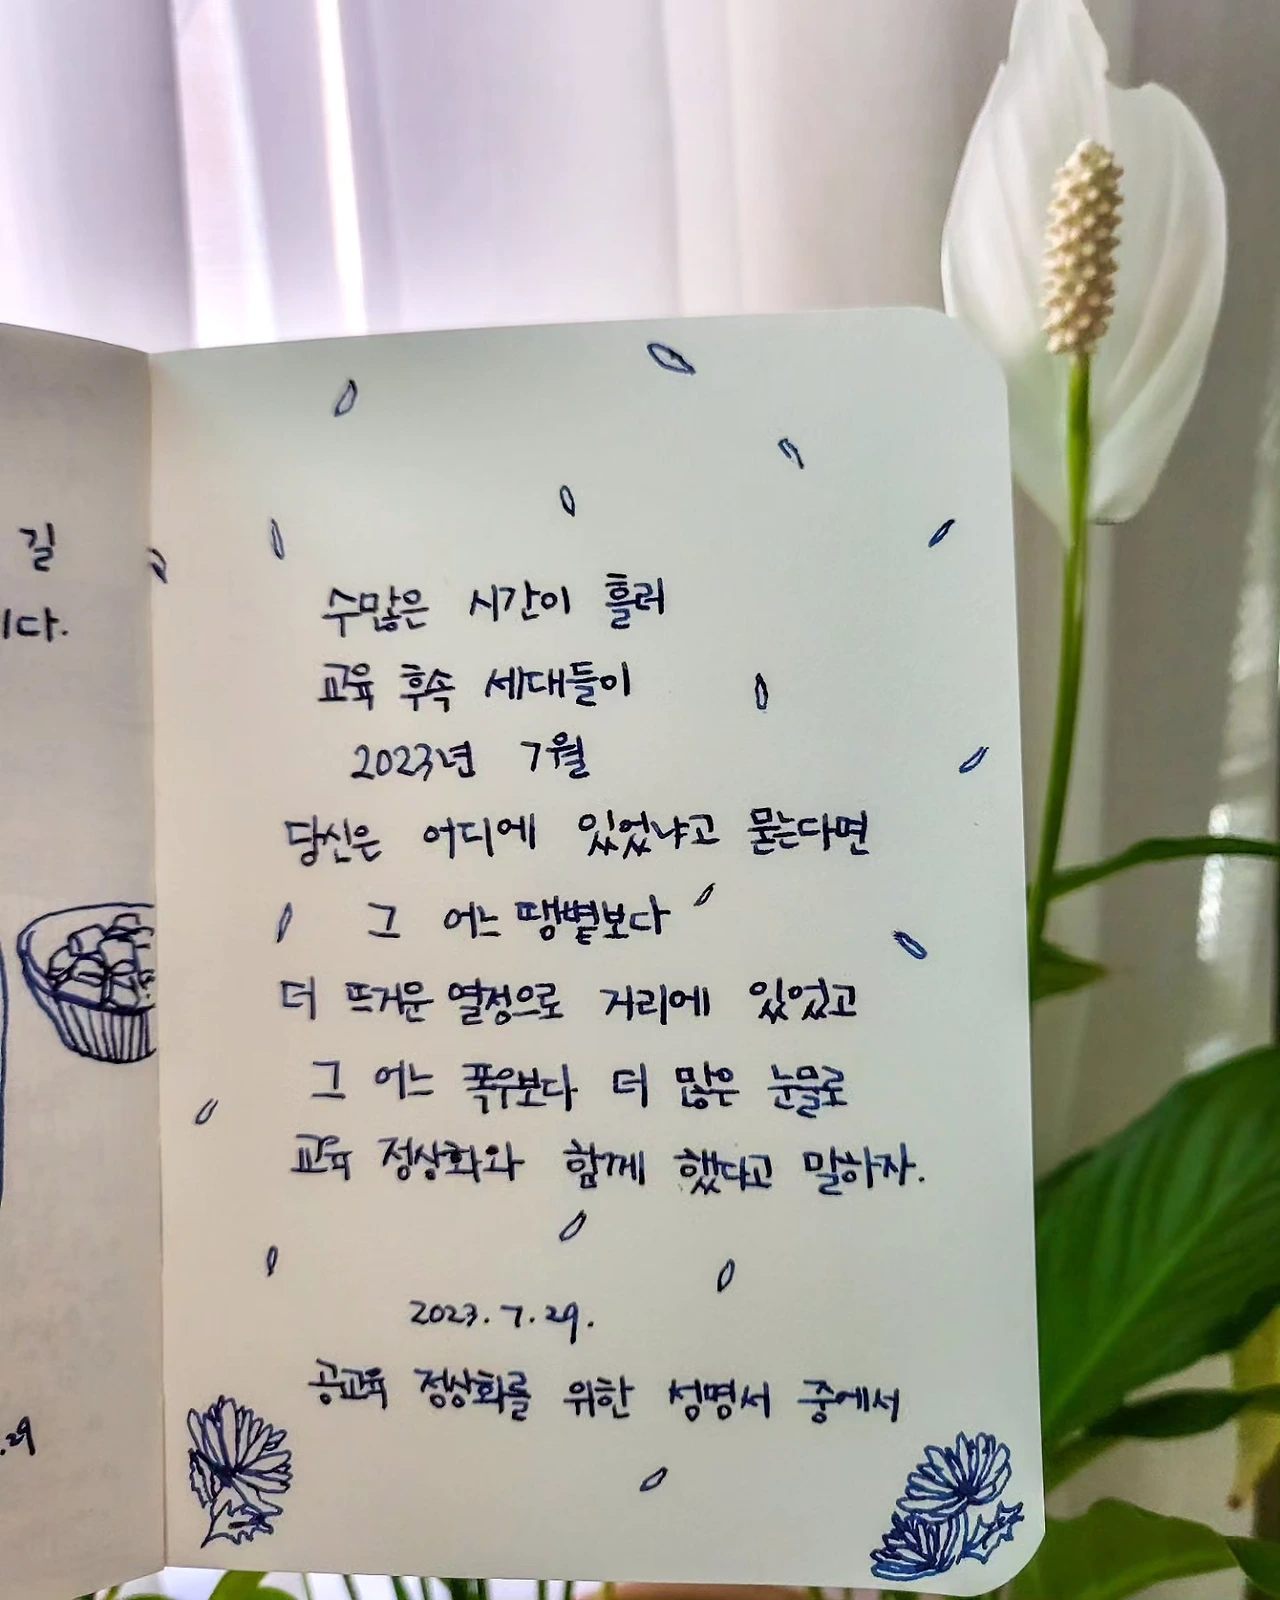 길
다.
수많은 시간이 흘러
교육 후속 세대들이
2023년 7월
당신은 어디에 있었냐고 묻는다면
그 어느 땡볕보다
더 뜨거운 열정으로 거리에 있었고
그 어느 폭우보다 더 많은 눈물로
교육 정상화와 함께 했다고 말하자.
2023. 7. 29.
공교육 정상화를 위한 성명서 중에서
.29